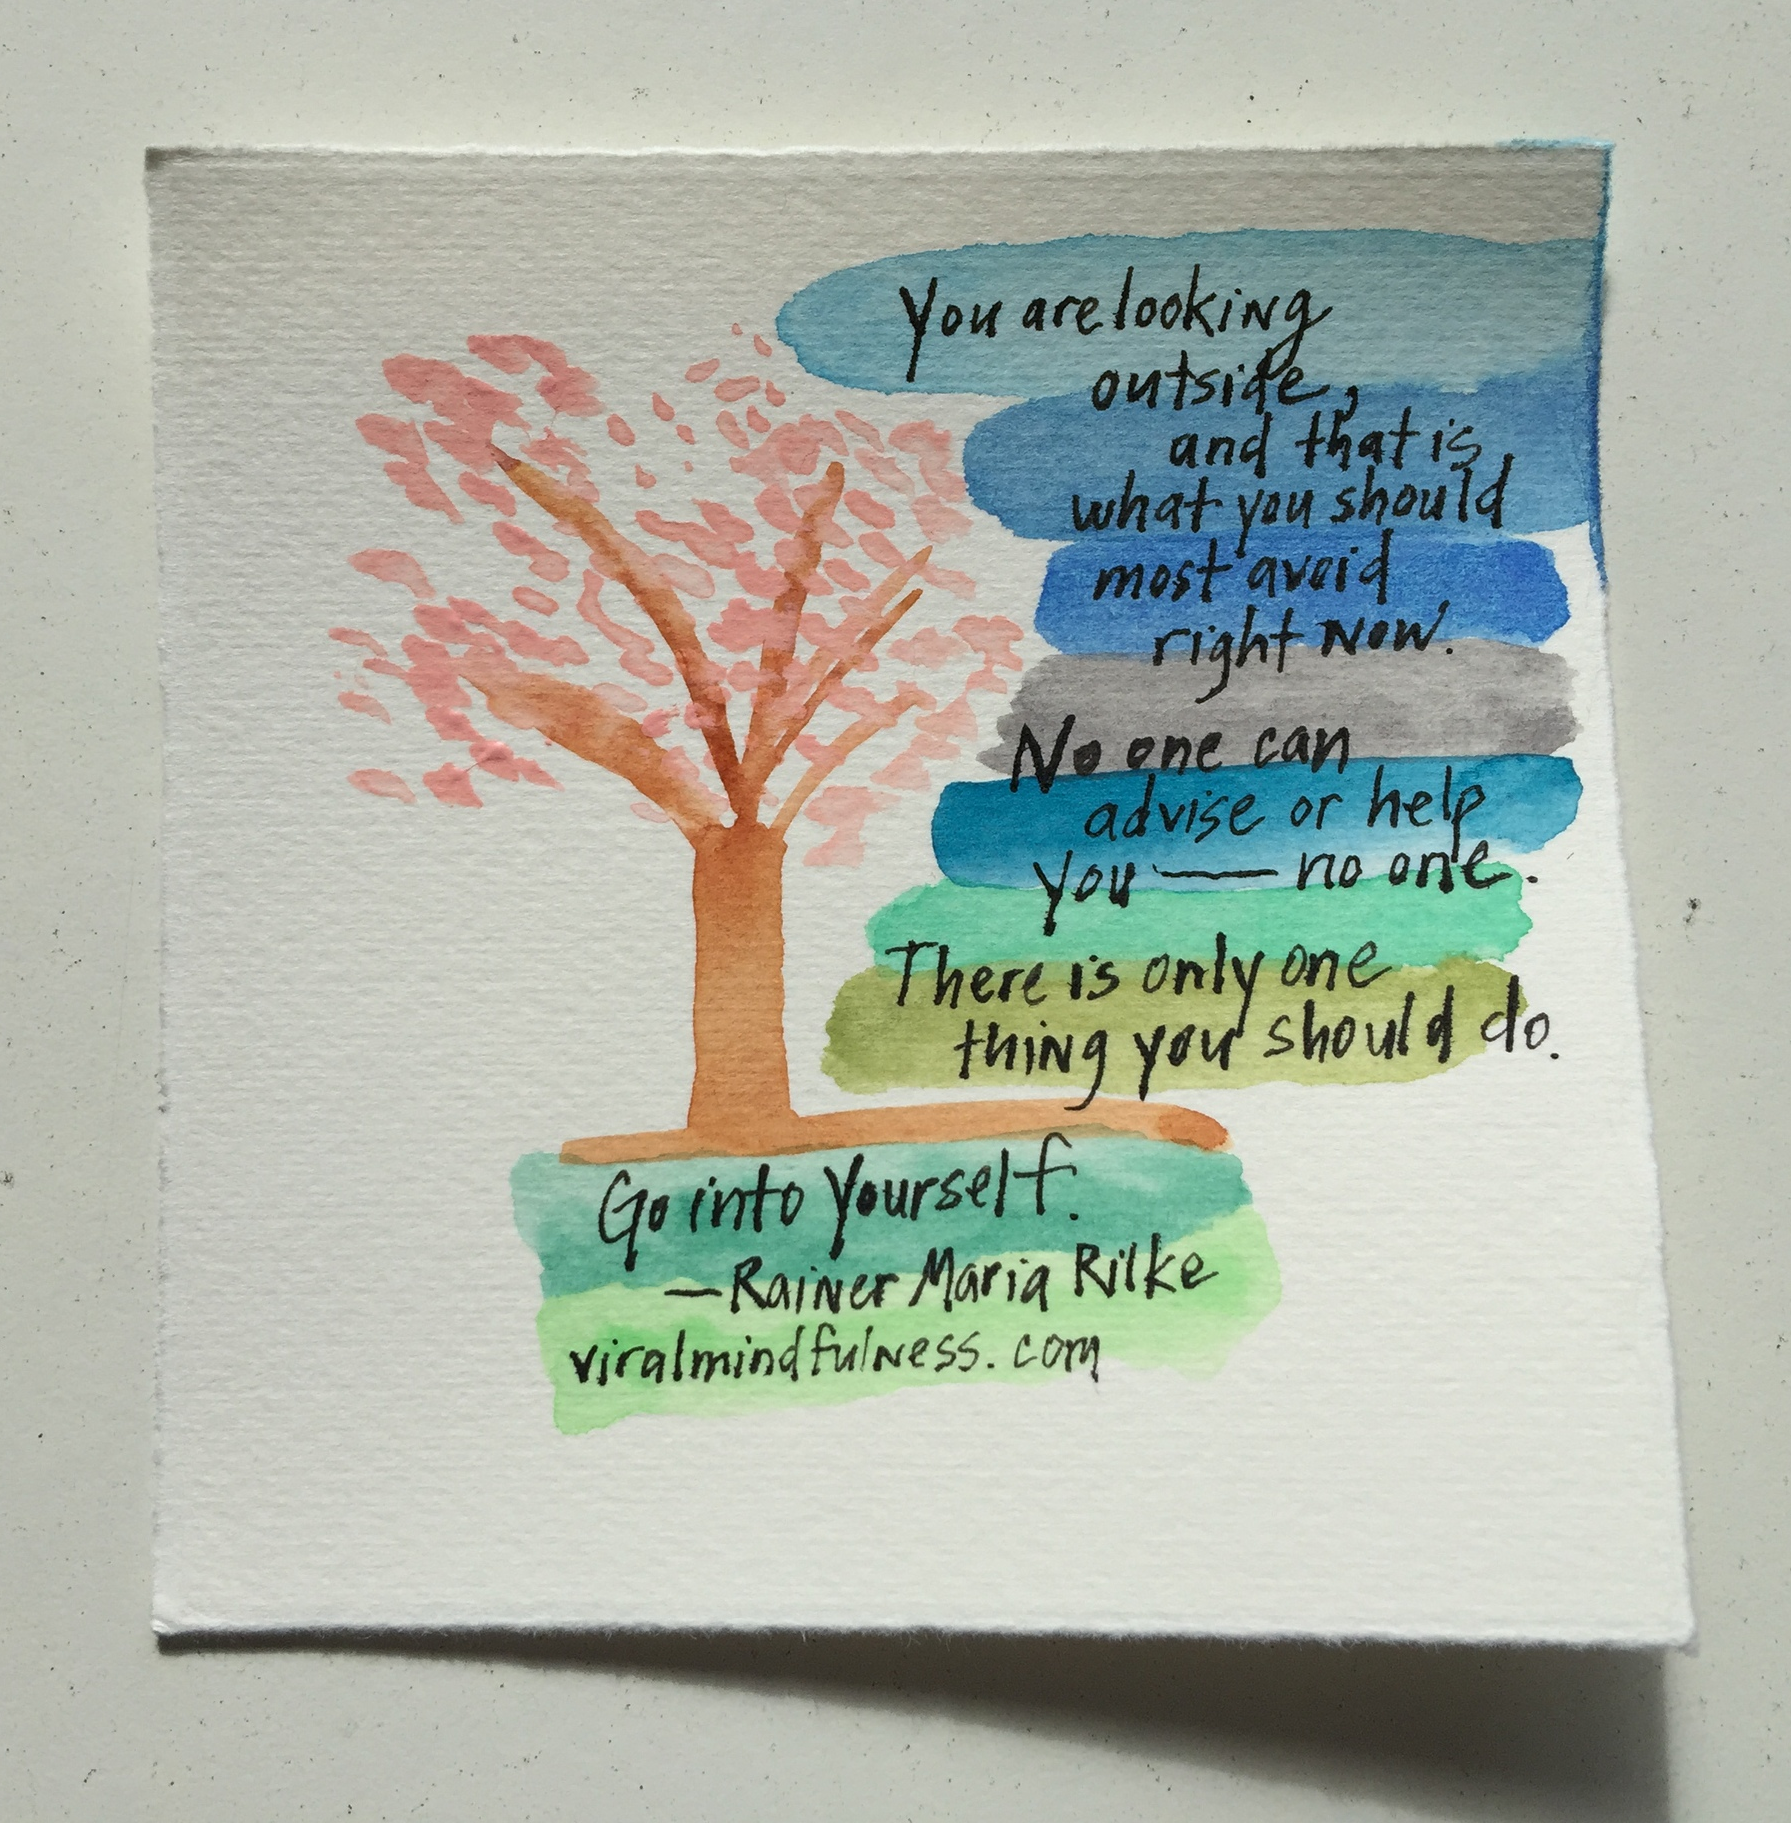 You are looking
outside,
and that is
what you should
most avoid
right now.
No one can
advise or help
you — no one.
There is only one
thing you should do.
Go into yourself.
—Rainer Maria Rilke
viralmindfulness.com